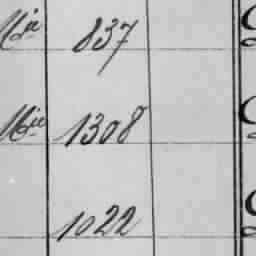 Mie 837
Mie 1308
1022